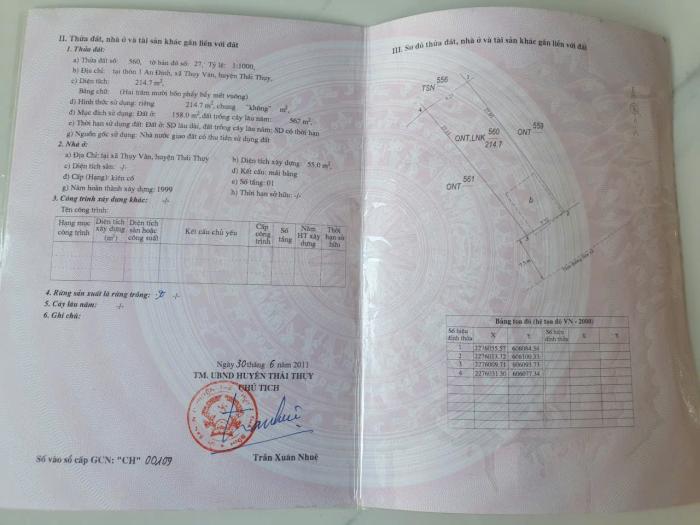 II. Thửa đất, nhà ở và tài sản khác gắn liền với đất
1. Thửa đất:
a) Thửa đất số: 560, tờ bản đồ số: 27, Tỷ lệ: 1:1000,
b) Địa chỉ: tại thôn 1 An Định, xã Thụy Văn, huyện Thái Thụy,
c) Diện tích: 214.7 m²,
Bằng chữ: (Hai trăm mười bốn phẩy bẩy mét vuông)
d) Hình thức sử dụng: riêng 214.7 m², chung "không" m²,
đ) Mục đích sử dụng: Đất ở: 158.0 m², đất trồng cây lâu năm: 56.7 m²
e) Thời hạn sử dụng: Đất ở: SD lâu dài, đất trồng cây lâu năm: SD có thời hạn
g) Nguồn gốc sử dụng: Nhà nước giao đất có thu tiền sử dụng đất
2. Nhà ở:
a) Địa Chỉ: tại xã Thụy Văn, huyện Thái Thụy
b) Diện tích xây dựng: 55.0 m²,
c) Diện tích sàn: -/-
d) Kết cấu: mái bằng
đ) Cấp (Hạng): kiên cố
e) Số tầng: 01
g) Năm hoàn thành xây dựng: 1999
h) Thời hạn sở hữu: -/-
3. Công trình xây dựng khác: -/-
Tên công trình:
Hạng mục công trình
Diện tích xây dựng (m²)
Diện tích sàn hoặc công suất
Kết cấu chủ yếu
Cấp công trình
Số tầng
Năm HT xây dựng
Thời hạn sở hữu
4. Rừng sản xuất là rừng trồng: -/-
5. Cây lâu năm: -/-
6. Ghi chú:
Ngày 30 tháng 6 năm 2011
TM. UBND HUYỆN THÁI THỤY
CHỦ TỊCH
Trần Xuân Nhuệ
Số vào sổ cấp GCN: "CH" 00109
III. Sơ đồ thửa đất, nhà ở và tài sản khác gắn liền với đất
556
TSN
1
4
ONT,LNK
560
214.7
559
ONT
561
ONT
b
2
3
7.5m
Bảng tọa độ (hệ tọa độ VN - 2000)
Số hiệu đỉnh thửa X Y Số hiệu đỉnh thửa X Y
1 2276035.57 606084.54
2 2276013.72 606100.33
3 2276009.71 606093.73
4 2276031.30 606077.34